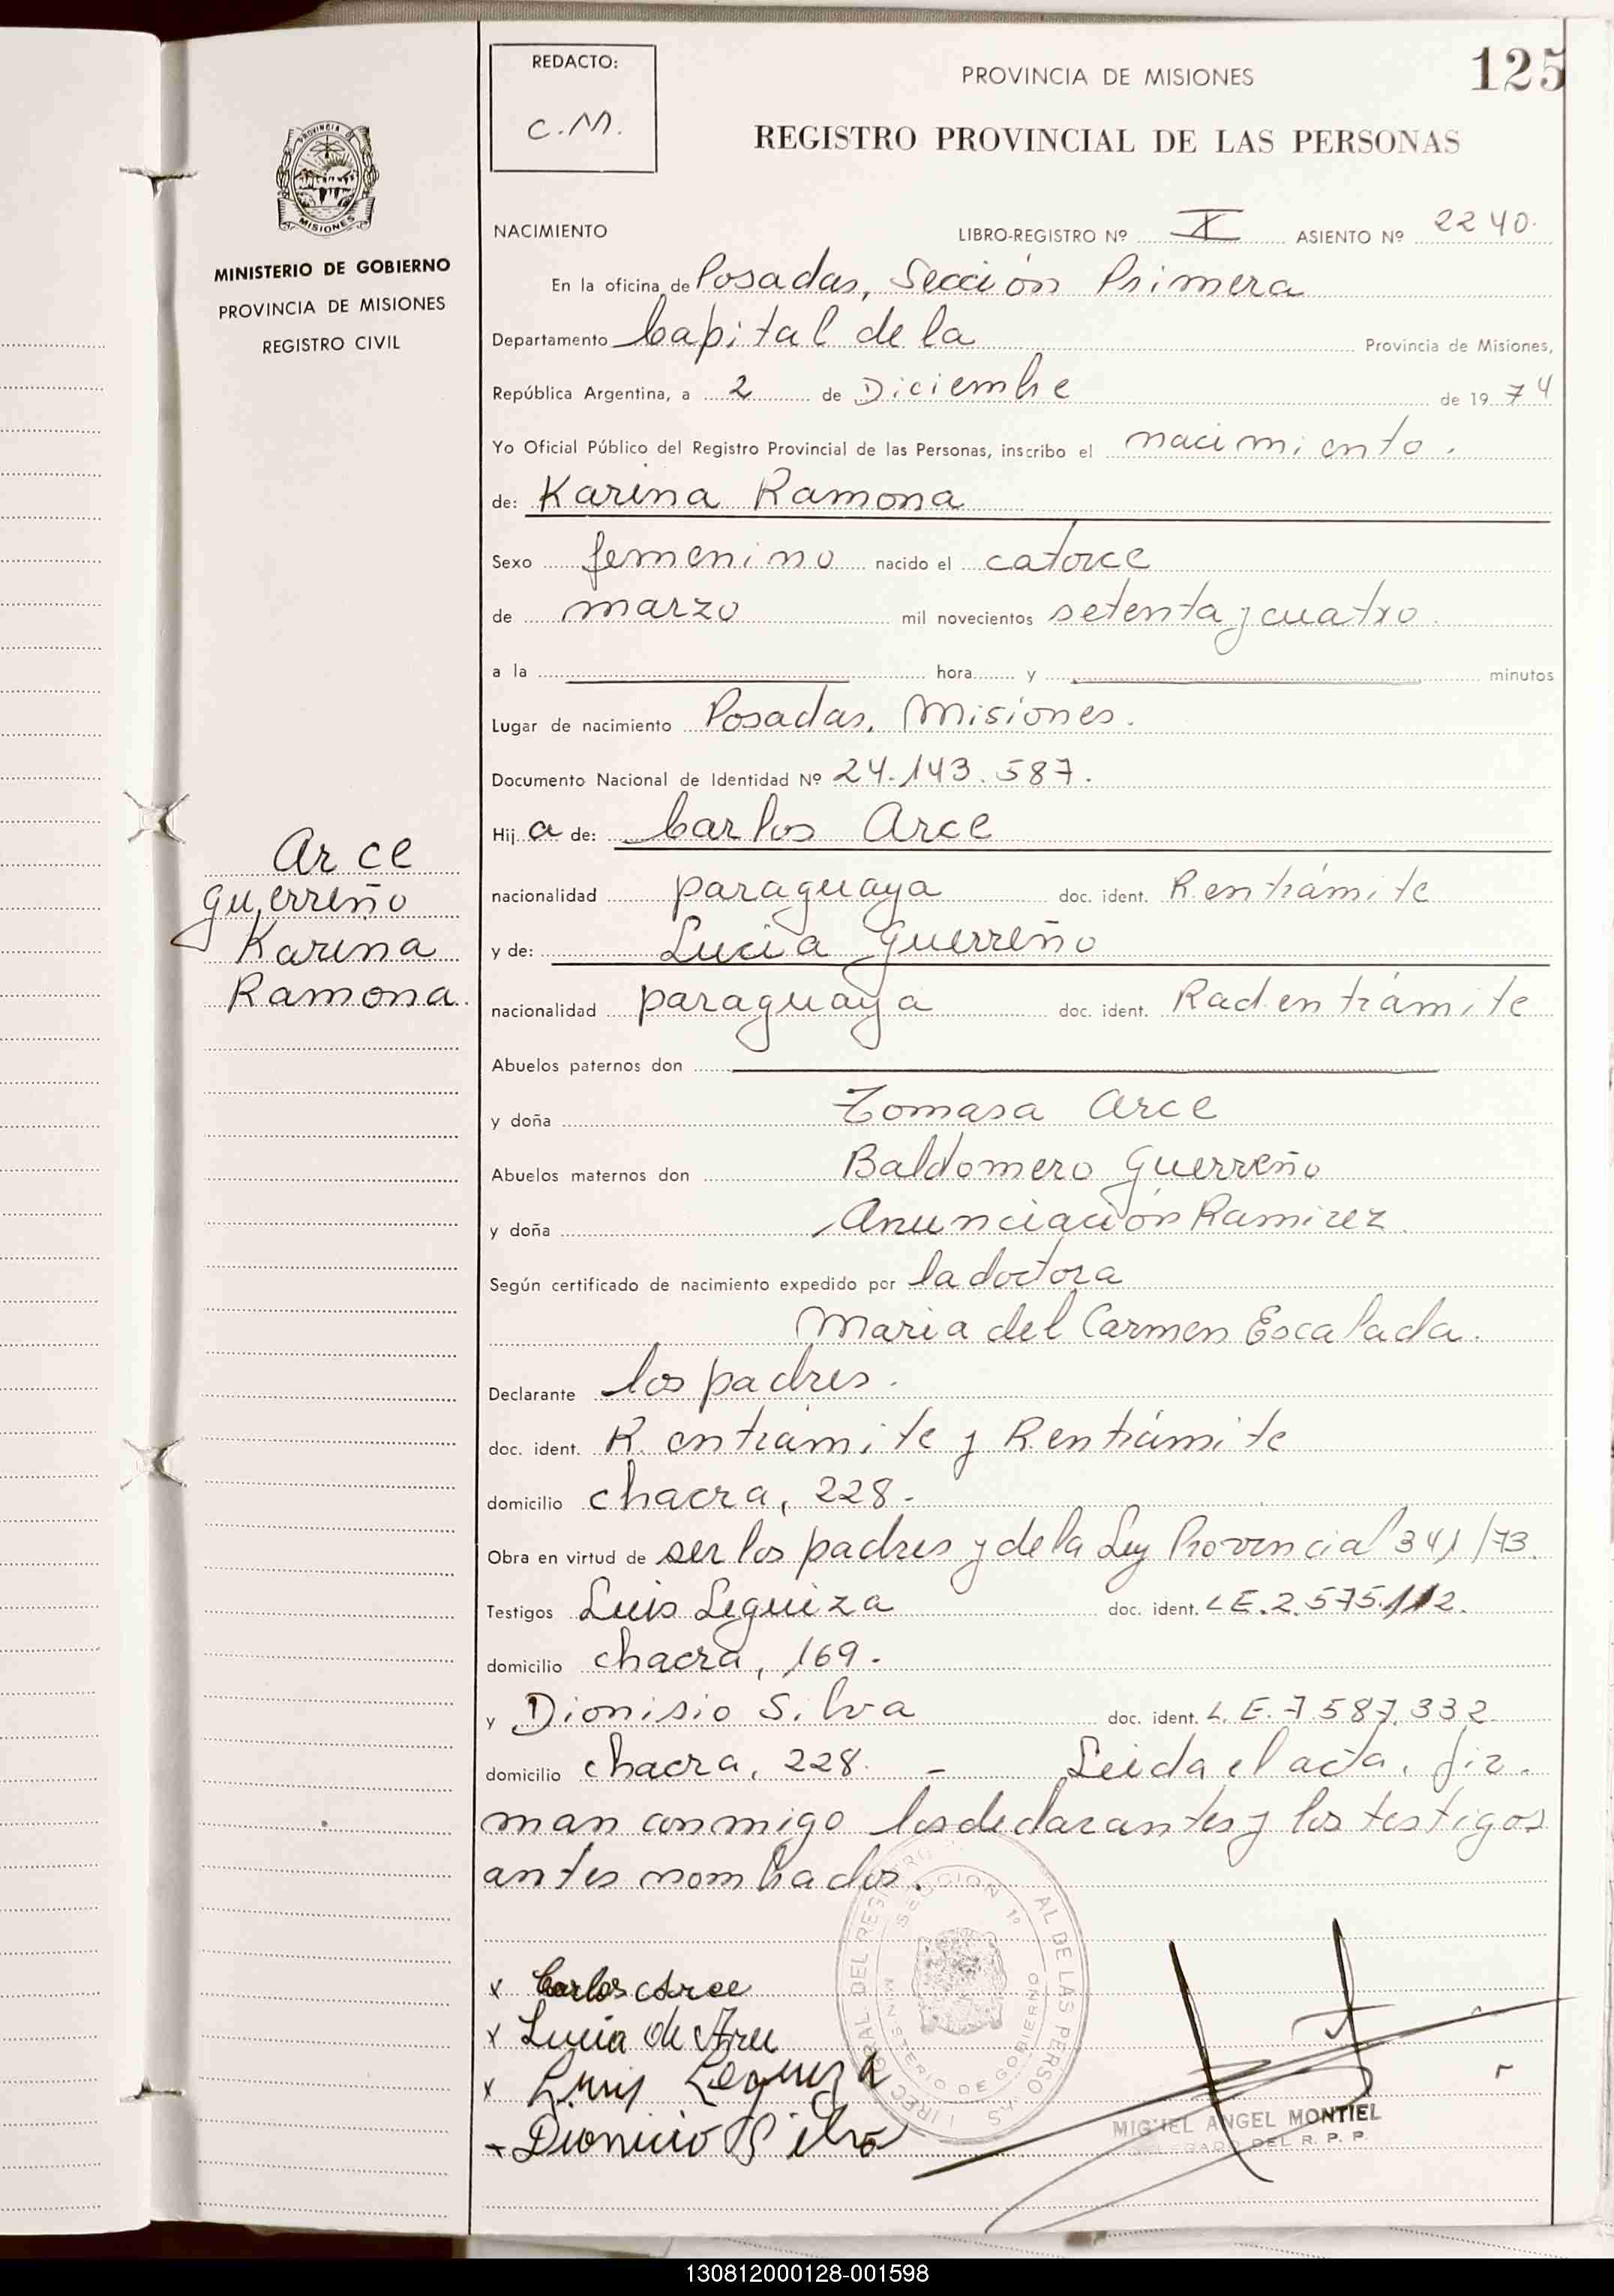 REDACTO:
C.M.
PROVINCIA DE MISIONES
125
REGISTRO PROVINCIAL DE LAS PERSONAS
PROVINCIA DE
MISIONES
MINISTERIO DE GOBIERNO
PROVINCIA DE MISIONES
REGISTRO CIVIL
NACIMIENTO
LIBRO-REGISTRO Nº X ASIENTO Nº 2240.
En la oficina de Posadas, Sección Primera
Departamento Capital de la Provincia de Misiones,
República Argentina, a 2 de Diciembre de 1974
Yo Oficial Público del Registro Provincial de las Personas, inscribo el nacimiento.
de: Karina Ramona
Sexo femenino nacido el catorce
de marzo mil novecientos setenta y cuatro
a la hora y minutos
Lugar de nacimiento Posadas, Misiones.
Documento Nacional de Identidad Nº 24.143.587.
Hija de: Carlos Arce
nacionalidad paraguaya doc. ident. R. en trámite
y de: Lucia Guerreño
nacionalidad paraguaya doc. ident. Rad. en trámite
Arce
Guerreño
Karina
Ramona.
Abuelos paternos don
y doña Tomasa Arce
Abuelos maternos don Baldomero Guerreño
y doña Anunciación Ramirez
Según certificado de nacimiento expedido por la doctora
Maria del Carmen Escalada.
Declarante los padres.
doc. ident. R. en trámite y R. en trámite
domicilio chacra, 228.
Obra en virtud de ser los padres y de la Ley Provincial 341/73.
Testigos Luis Leguiza doc. ident. L E. 2.575.112.
domicilio chacra, 169.
y Dionisio Silva doc. ident. L. E. 7.587.332
domicilio chacra, 228. - Leida el acta, fir-
man conmigo los declarantes y los testigos
antes nombrados.
SECCION 1º
MINISTERIO DE GOBIERNO
x Carlos Arce
x Lucia de Arce
x Luis Leguiza
x Dionicio Silva
MIGUEL ANGEL MONTIEL
DELEGADO DEL R. P. P.
130812000128-001598